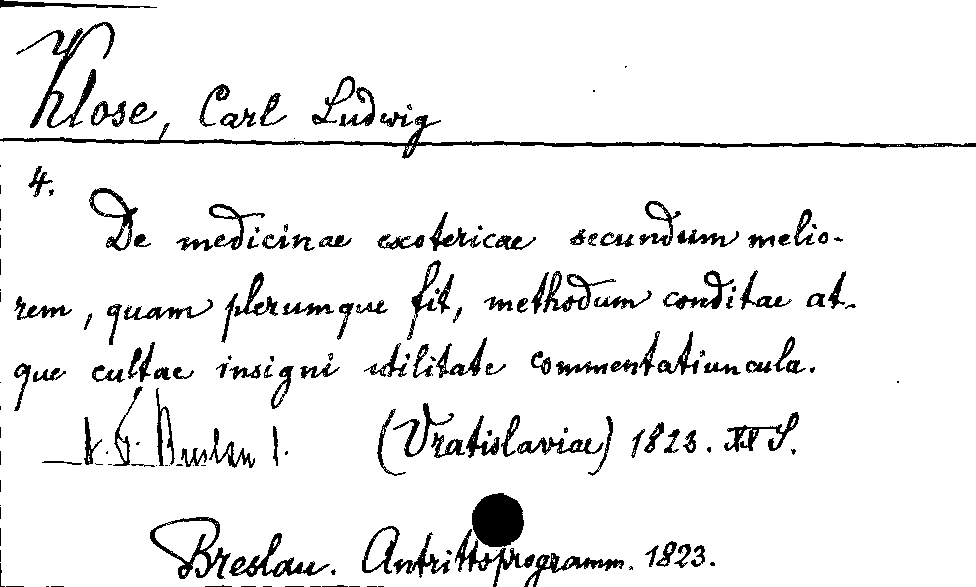 Klose, Carl Ludwig
4.
De medicinae exotericae secundum melio-
rem, quam plerumque fit, methodum conditae at-
que cultae insigni utilitate commentatiuncula.
Breslau (Vratislaviae) 1823. XX S.
Breslau. Antrittsprogramm. 1823.